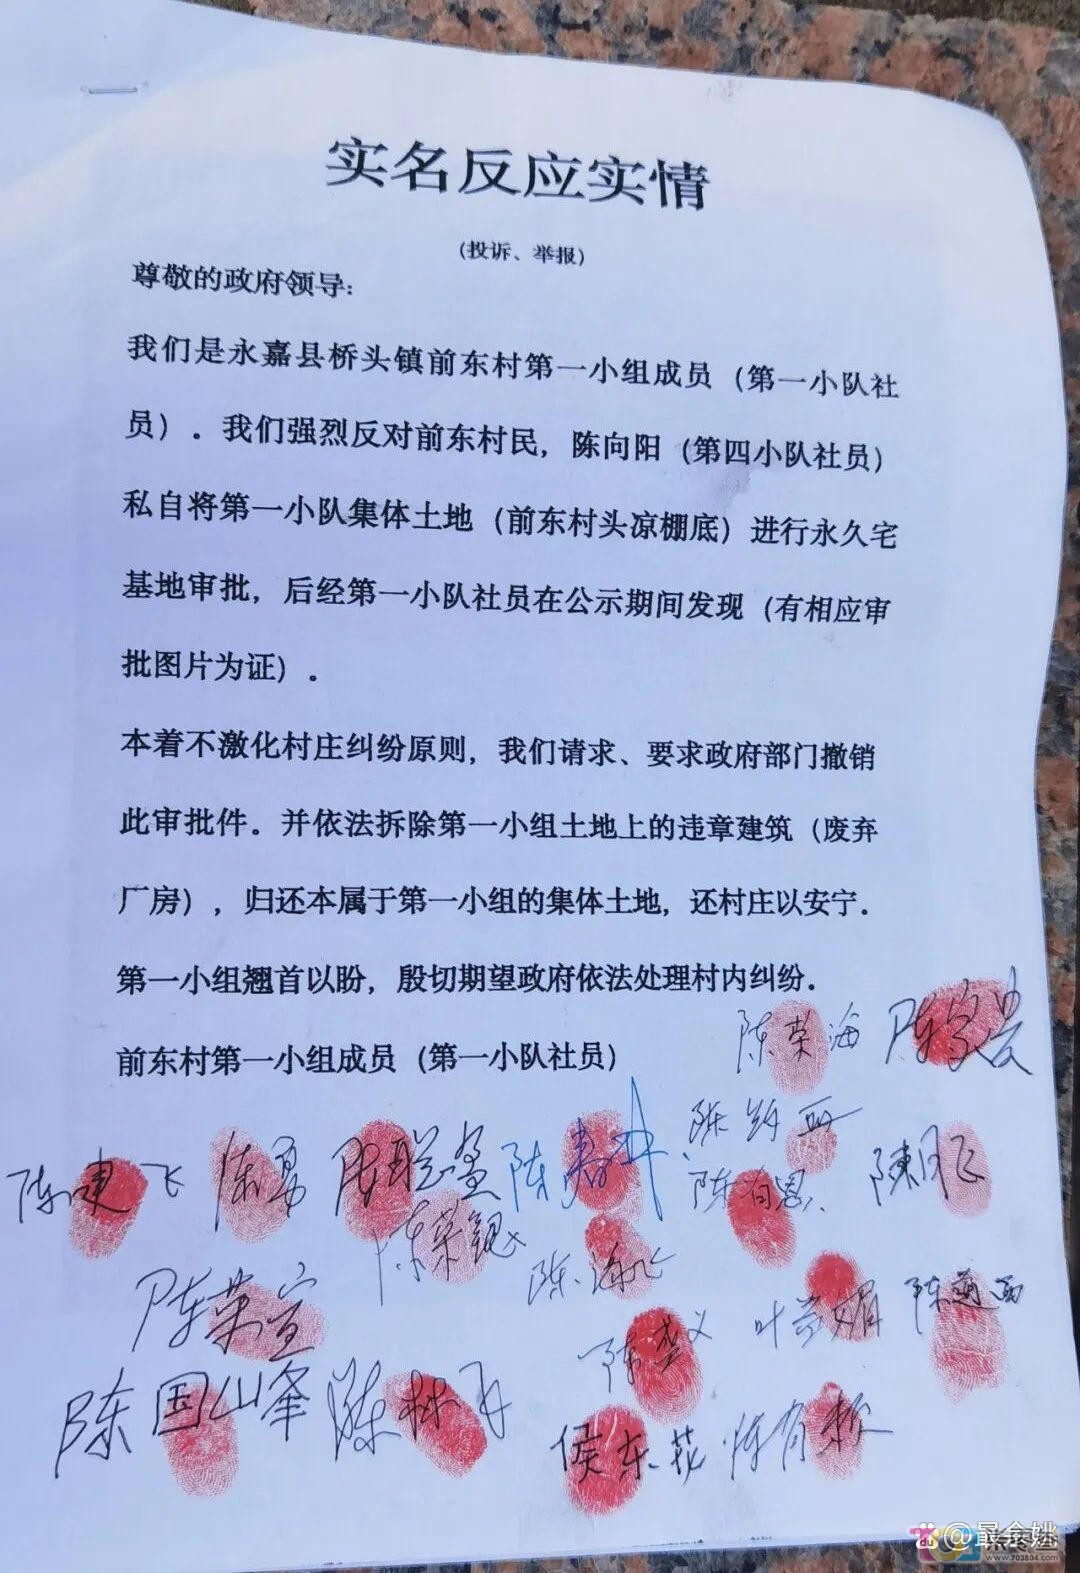 实名反应实情
(投诉、举报)
尊敬的政府领导:
我们是永嘉县桥头镇前东村第一小组成员（第一小队社
员）. 我们强烈反对前东村民, 陈向阳（第四小队社员）
私自将第一小队集体土地（前东村头凉棚底）进行永久宅
基地审批, 后经第一小队社员在公示期间发现（有相应审
批图片为证）.
本着不激化村庄纠纷原则, 我们请求、要求政府部门撤销
此审批件。并依法拆除第一小组土地上的违章建筑（废弃
厂房）, 归还本属于第一小组的集体土地, 还村庄以安宁.
第一小组翘首以盼, 殷切期望政府依法处理村内纠纷.
前东村第一小组成员（第一小队社员）
陈荣海
陈建飞 陈勇
陈有恩
陈荣宣
陈国峰 陈林
侯东花
@最余姚
www.703804.com